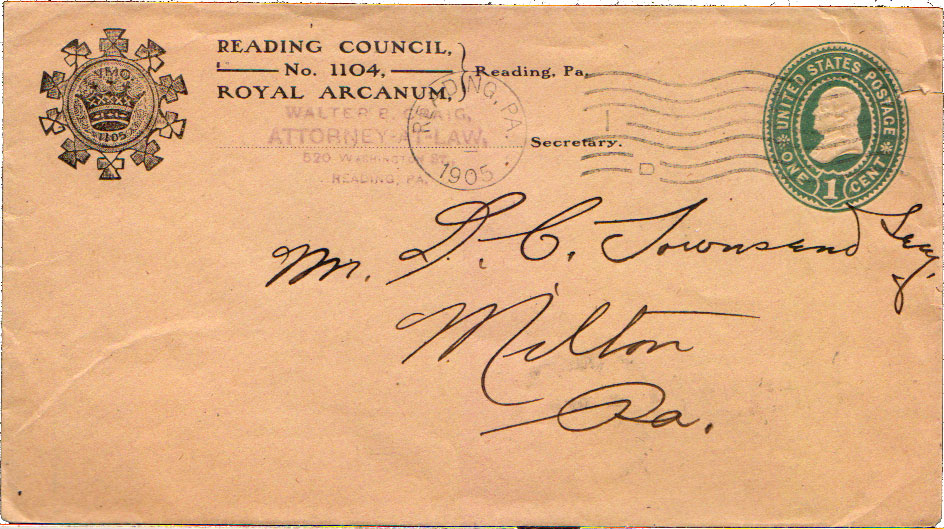 VMC
1105
READING COUNCIL,
No. 1104,
ROYAL ARCANUM,
Reading, Pa.
WALTER B. CRAIG,
ATTORNEY-AT-LAW,
520 WASHINGTON ST.,
READING, PA.
Secretary.
READING, PA.
1905
D
UNITED STATES POSTAGE
ONE 1 CENT
Mr. D. C. Townsend Secy.
Milton
Pa.